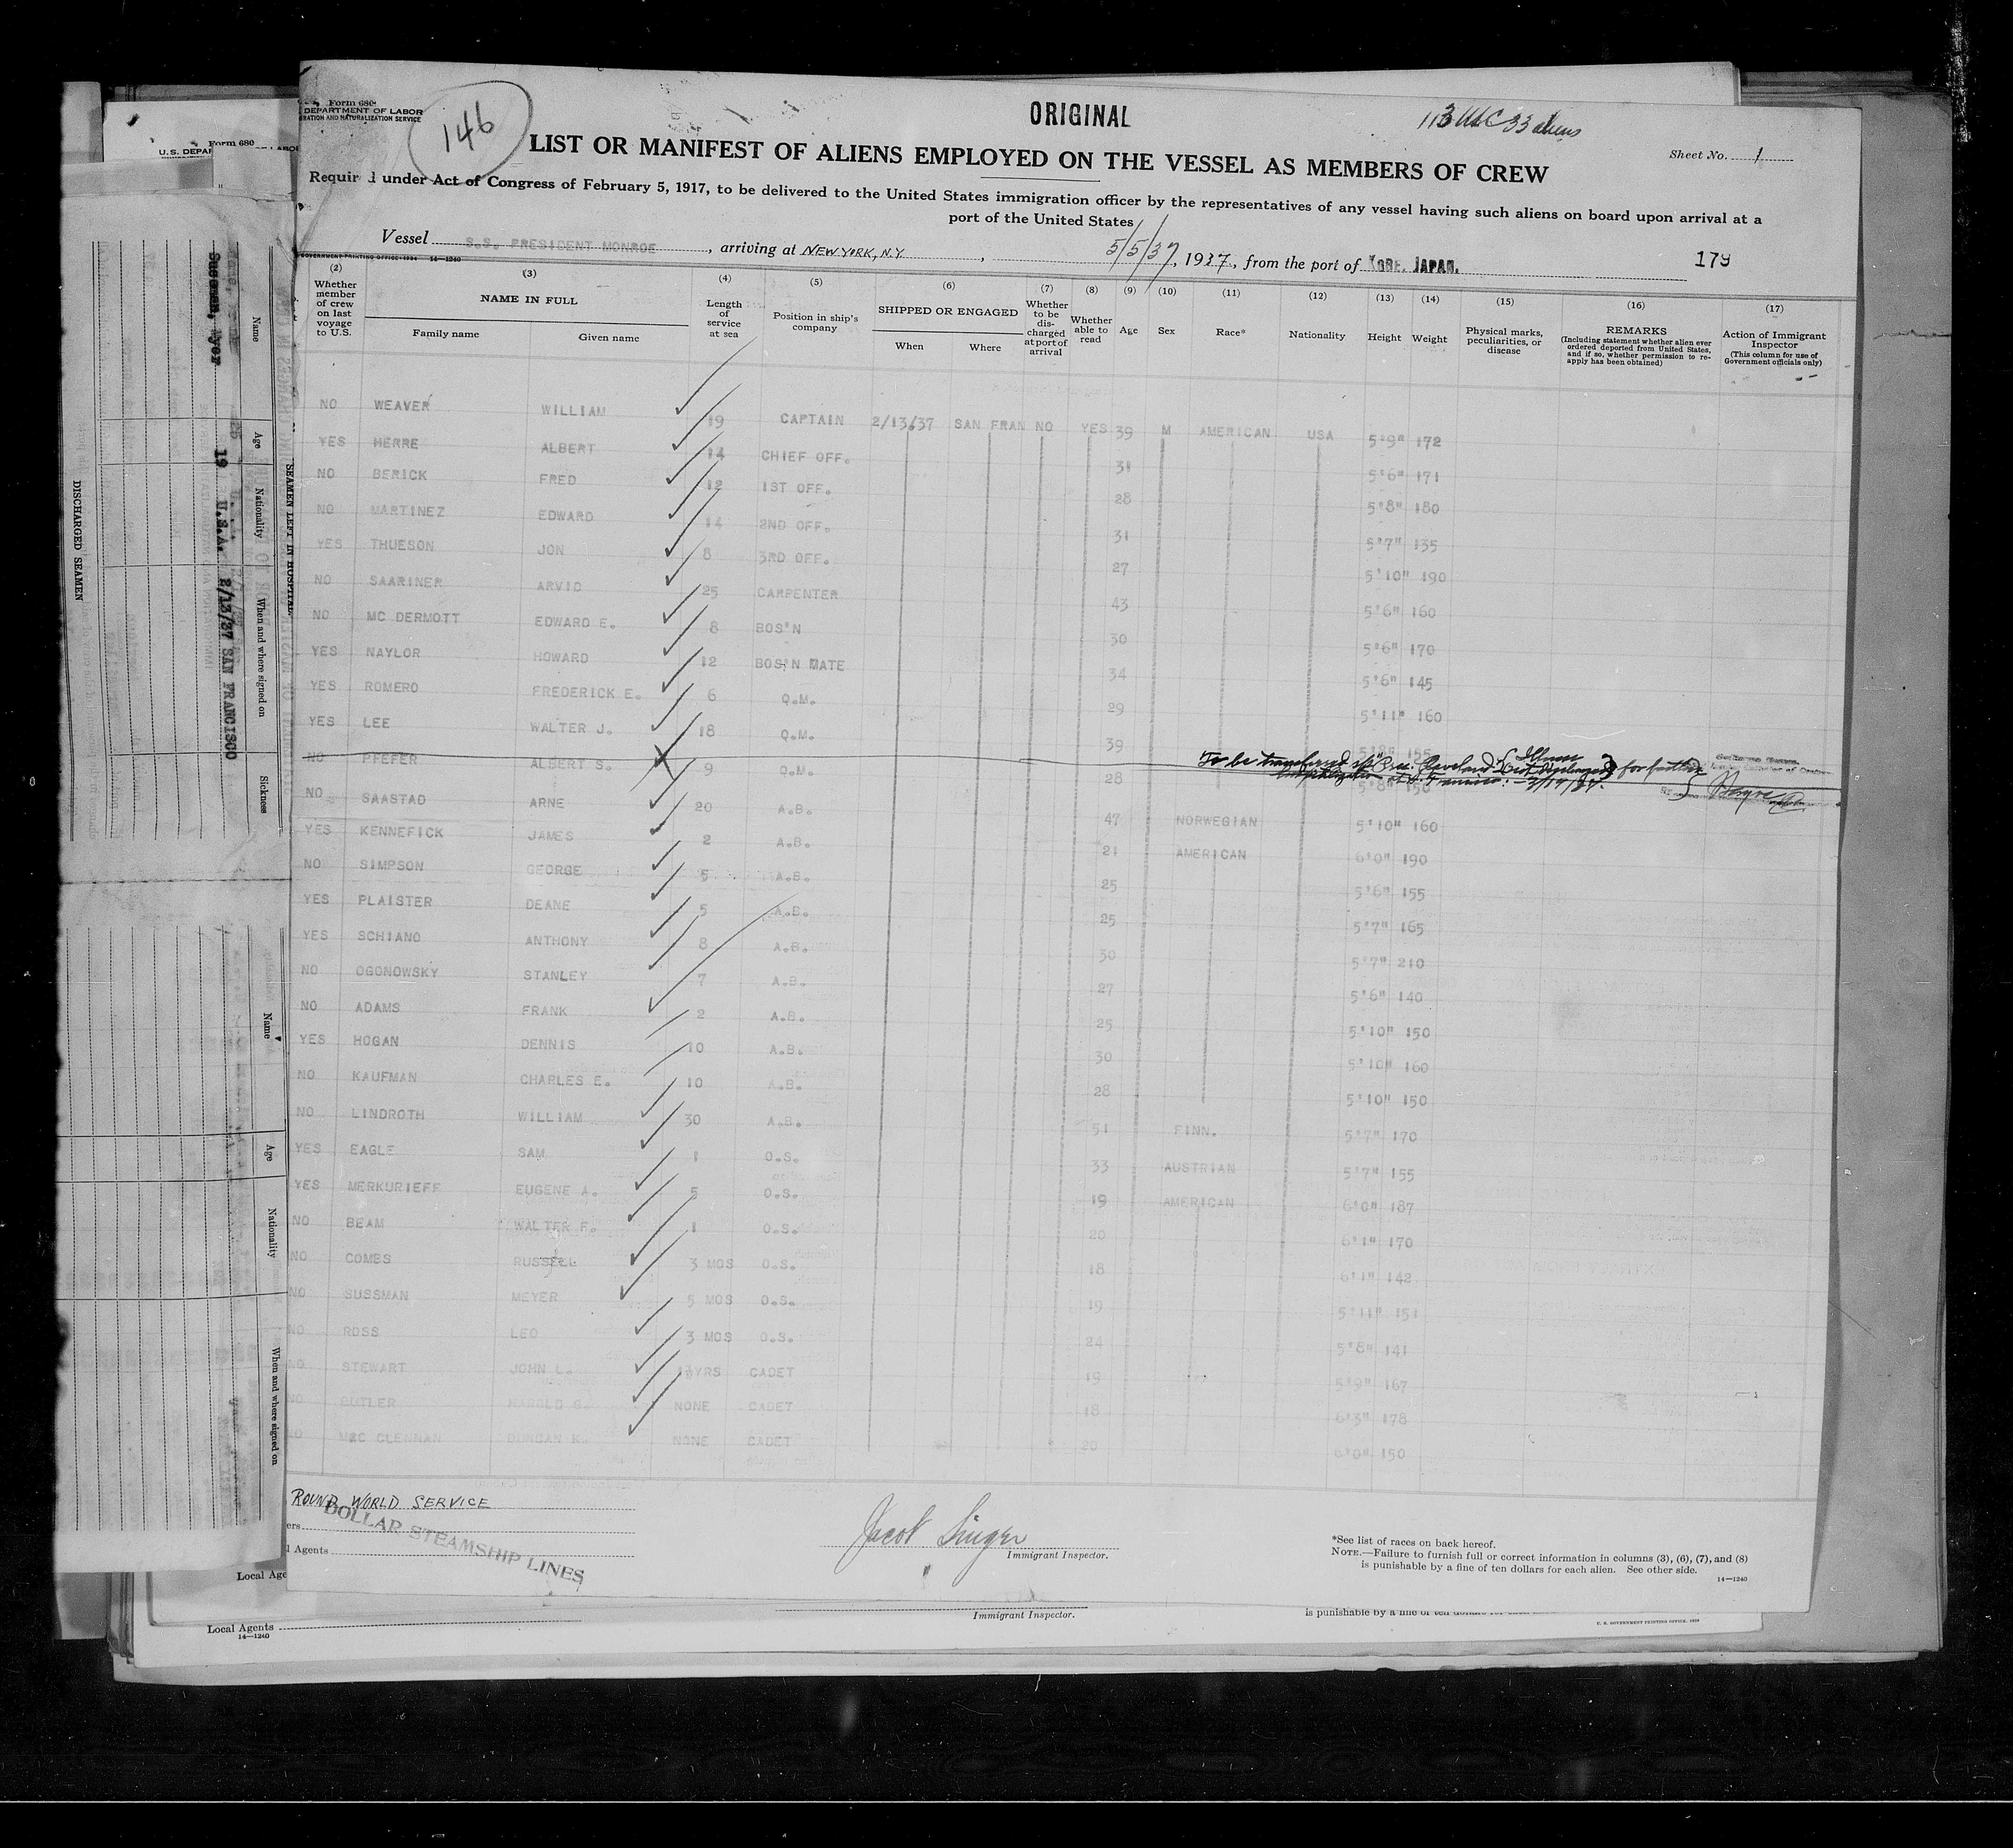 Form 680
DEPARTMENT OF LABOR
RATION AND NATURALIZATION SERVICE
146
ORIGINAL
113 USC 33 aliens
LIST OR MANIFEST OF ALIENS EMPLOYED ON THE VESSEL AS MEMBERS OF CREW
Sheet No. 1
Requir d under Act of Congress of February 5, 1917, to be delivered to the United States immigration officer by the representatives of any vessel having such aliens on board upon arrival at a
port of the United States
Vessel S.S. PRESIDENT MONROE, arriving at NEW YORK, N.Y., 5/5/37, 1937, from the port of KOBE, JAPAN. 179
GOVERNMENT PRINTING OFFICE 14—1240
(2) Whether member of crew on last voyage to U.S.
(3) NAME IN FULL Family name Given name
(4) Length of service at sea
(5) Position in ship's company
(6) SHIPPED OR ENGAGED When Where
(7) Whether to be discharged at port of arrival
(8) Whether able to read
(9) Age
(10) Sex
(11) Race*
(12) Nationality
(13) Height
(14) Weight
(15) Physical marks, peculiarities, or disease
(16) REMARKS (Including statement whether alien ever ordered deported from United States, and if so, whether permission to re-apply has been obtained)
(17) Action of Immigrant Inspector (This column for use of Government officials only)
NO WEAVER WILLIAM 19 CAPTAIN 2/13/37 SAN FRAN NO YES 39 M AMERICAN USA 5'9" 172
YES HERRE ALBERT 14 CHIEF OFF. 31 5'6" 171
NO BERICK FRED 12 1ST OFF. 28 5'8" 180
NO MARTINEZ EDWARD 14 2ND OFF. 31 5'7" 135
YES THUESON JON 8 3RD OFF. 27 5'10" 190
NO SAARINER ARVID 25 CARPENTER 43 5'6" 160
NO MC DERMOTT EDWARD E. 8 BOS'N 30 5'6" 170
YES NAYLOR HOWARD 12 BOS'N MATE 34 5'6" 145
YES ROMERO FREDERICK E. 6 Q.M. 29 5'11" 160
YES LEE WALTER J. 18 Q.M. 39
NO PFEFER ALBERT S. 9 Q.M. 28 5'8" 150
To be transferred s/s "Pres. Cleveland for further
NO SAASTAD ARNE 20 A.B. 47 NORWEGIAN 5'10" 160
YES KENNEFICK JAMES 2 A.B. 21 AMERICAN 6'0" 190
NO SIMPSON GEORGE 5 A.B. 25 5'6" 155
YES PLAISTER DEANE 5 A.B. 25 5'7" 165
YES SCHIANO ANTHONY 8 A.B. 30 5'7" 210
NO OGONOWSKY STANLEY 7 A.B. 27 5'6" 140
NO ADAMS FRANK 2 A.B. 25 5'10" 150
YES HOGAN DENNIS 10 A.B. 30 5'10" 160
NO KAUFMAN CHARLES E. 10 A.B. 28 5'10" 150
NO LINDROTH WILLIAM 30 A.B. 51 FINN. 5'7" 170
YES EAGLE SAM 1 O.S. 33 AUSTRIAN 5'7" 155
YES MERKURIEFF EUGENE A. 5 O.S. 19 AMERICAN 6'0" 187
NO BEAM WALTER F. 1 O.S. 20 6'1" 170
NO COMBS RUSSELL 3 MOS O.S. 18 6'1" 142
NO SUSSMAN MEYER 5 MOS O.S. 19 5'11" 151
NO ROSS LEO 3 MOS O.S. 24 5'8" 141
NO STEWART JOHN L. YRS CADET 19 5'9" 167
NO BUTLER HAROLD S. NONE CADET 18 6'3" 178
NO MAC CLENNAN DUNCAN K. NONE CADET 20 6'0" 150
ROUND WORLD SERVICE
DOLLAR STEAMSHIP LINES
ers
l Agents
Jacob Singer
Immigrant Inspector.
*See list of races on back hereof.
NOTE.—Failure to furnish full or correct information in columns (3), (6), (7), and (8)
is punishable by a fine of ten dollars for each alien. See other side.
14—1240
Local Age
Local Agents
14—1240
Immigrant Inspector.
U. S. GOVERNMENT PRINTING OFFICE
Form 680
U.S. DEPAR
DISCHARGED SEAMEN
SEAMEN LEFT IN HOSPITAL
Name
Age
Nationality
When and where signed on
Sickness
Sussman, Myer
19
U.S.A.
2/13/37 SAN FRANCISCO
Name
Age
Nationality
When and where signed on